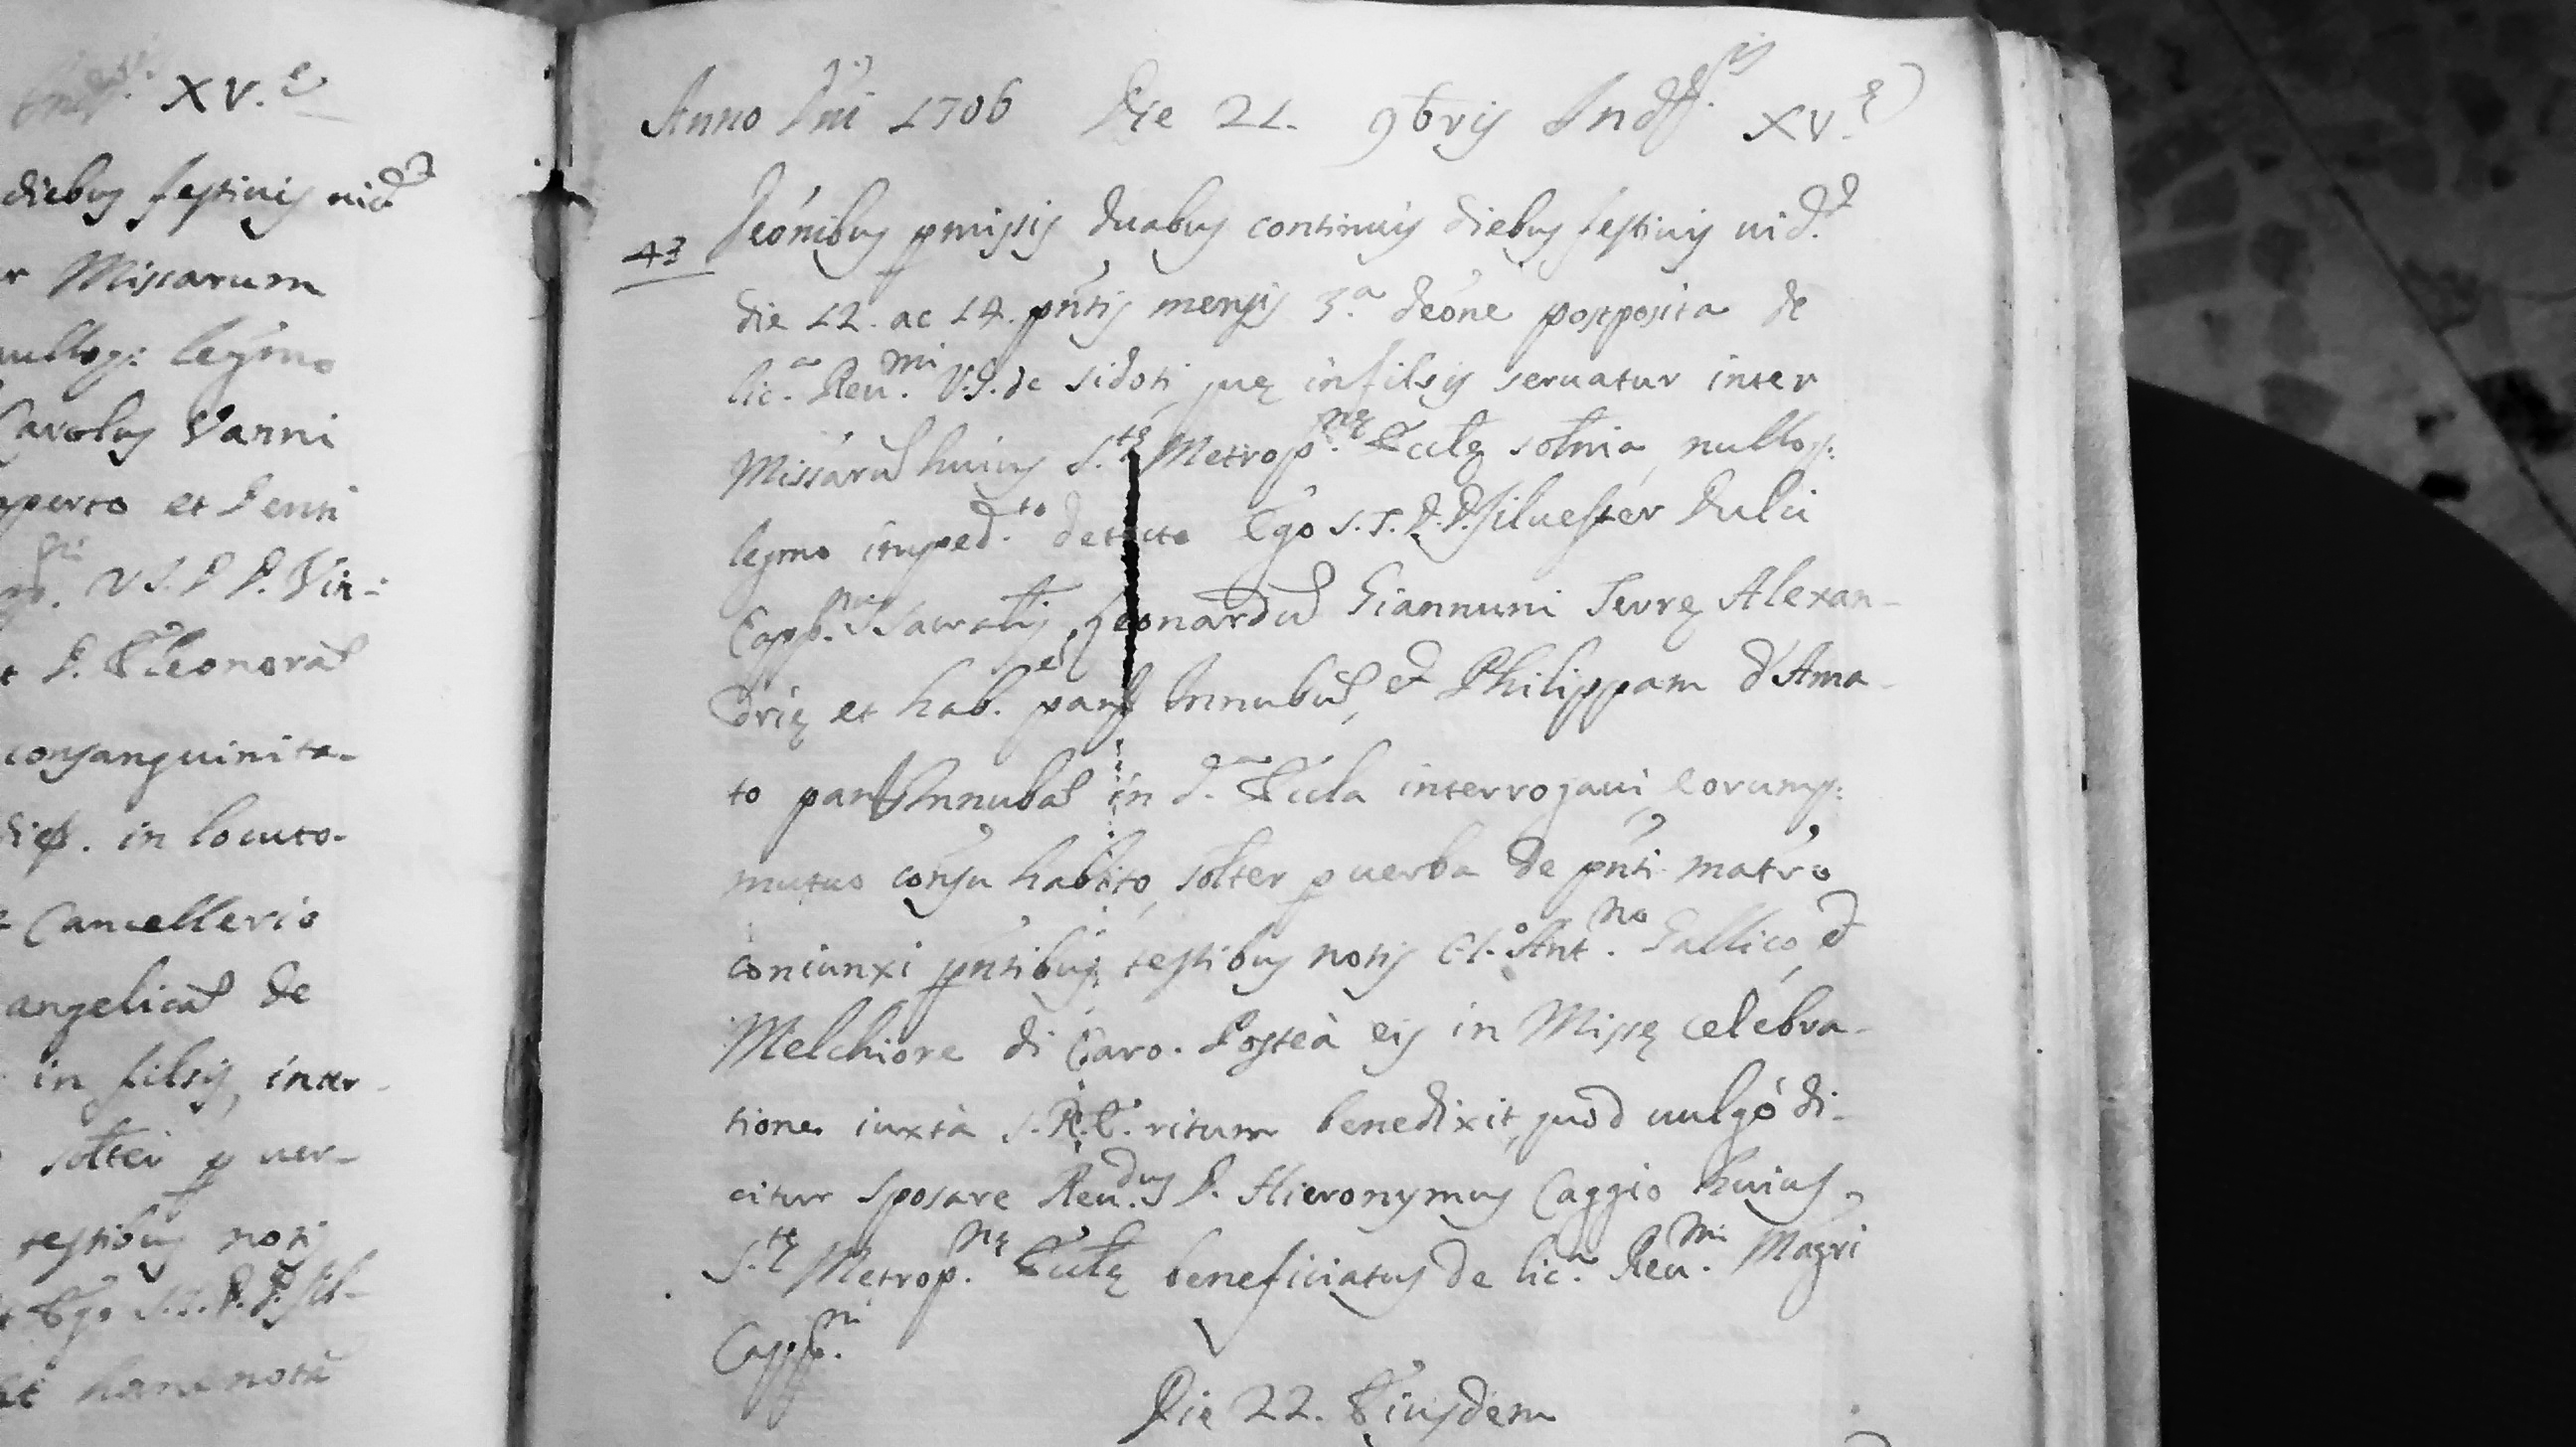 XV.e
diebus festivis uid.t
Missarum
nulloq: legmo
Carolus Vanni
et Denti
V.I.D. D. Vin-
D. Eleonorã
consanguinita-
disp. in locuto-
Cancellerio
angelicã de
in filsis, inter-
solter p uer-
testibus notis
Ego S.T.D. D. Sil-
Anno Dni 1706 Die 21. 9bris Indis XV.e
43 Deónibus pmissis duabus continuis diebus festiuis uid.t
die 12. ac 14. pntis mensis 3.a deóne postposita de
lic.a Reu.mi V.G. de Sidoti que in filsis seruatur inter
Missarũ huius S.te Metrop.ne Eccle solnia, nulloq:
legmo imped.to detecto Ego S.T.D. D. Siluester Dulci
Capp.nus Sacralis, Leonardũ Giannuni Terre Alexan-
drie et hab.e pans Innubũ, et Philippam d'Ama-
to pans Innubã in d.a Eccla interrogaui, eorumq:
mutuo consu habito, solter p uerba de pnti matrio
coniunxi pntibus testibus notis Cl.o Ant.no Gallico, et
Melchiore di Caro. Posteà eis in Misse celebra-
tione iuxtà S.R.E. ritum benedixit, quod uulgò di-
citur Sposare Reu.dus D. Hieronymus Caggio huius
S.te Metrop.ne Eccle beneficiatus de lic.a Reu.mi Magri
Capp.ni
Die 22. Eiusdem